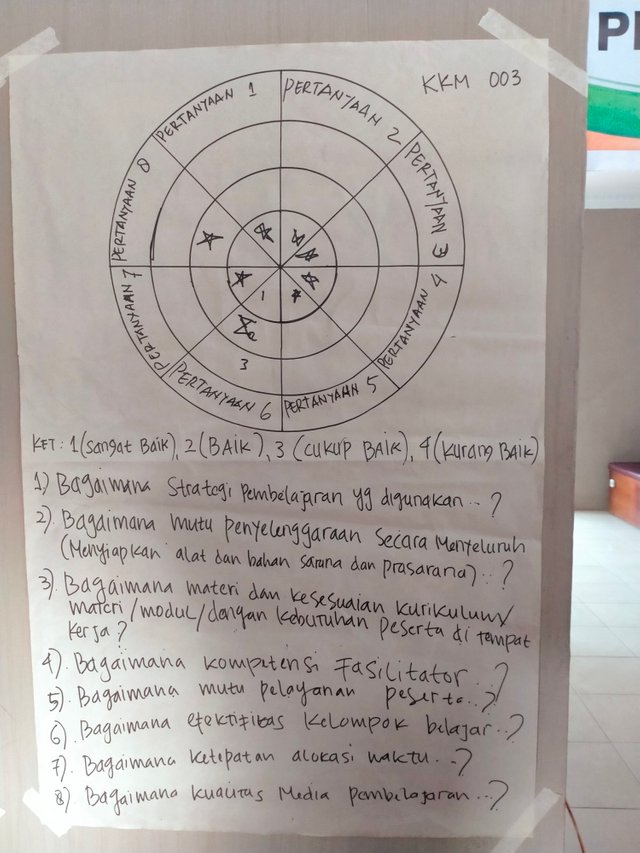 KKM 003
PERTANYAAN 1
PERTANYAAN 2
PERTANYAAN 3
PERTANYAAN 4
PERTANYAAN 5
PERTANYAAN 6
PERTANYAAN 7
PERTANYAAN 8
1
3
KET : 1 (Sangat Baik), 2 (BAIK), 3 (CUKUP BAIK), 4 (Kurang BAIK)
1) Bagaimana Strategi Pembelajaran yg digunakan...?
2). Bagaimana mutu penyelenggaraan Secara Menyeluruh
(Menyiapkan alat dan bahan sarana dan prasarana)..?
3). Bagaimana materi dan kesesuaian kurikulum/
materi/modul/dengan kebutuhan peserta di tempat
kerja?
4). Bagaimana kompetensi Fasilitator..?
5). Bagaimana mutu pelayanan peserta..?
6). Bagaimana efektifitas kelompok belajar..?
7). Bagaimana ketepatan alokasi waktu..?
8). Bagaimana kualitas Media Pembelajaran...?